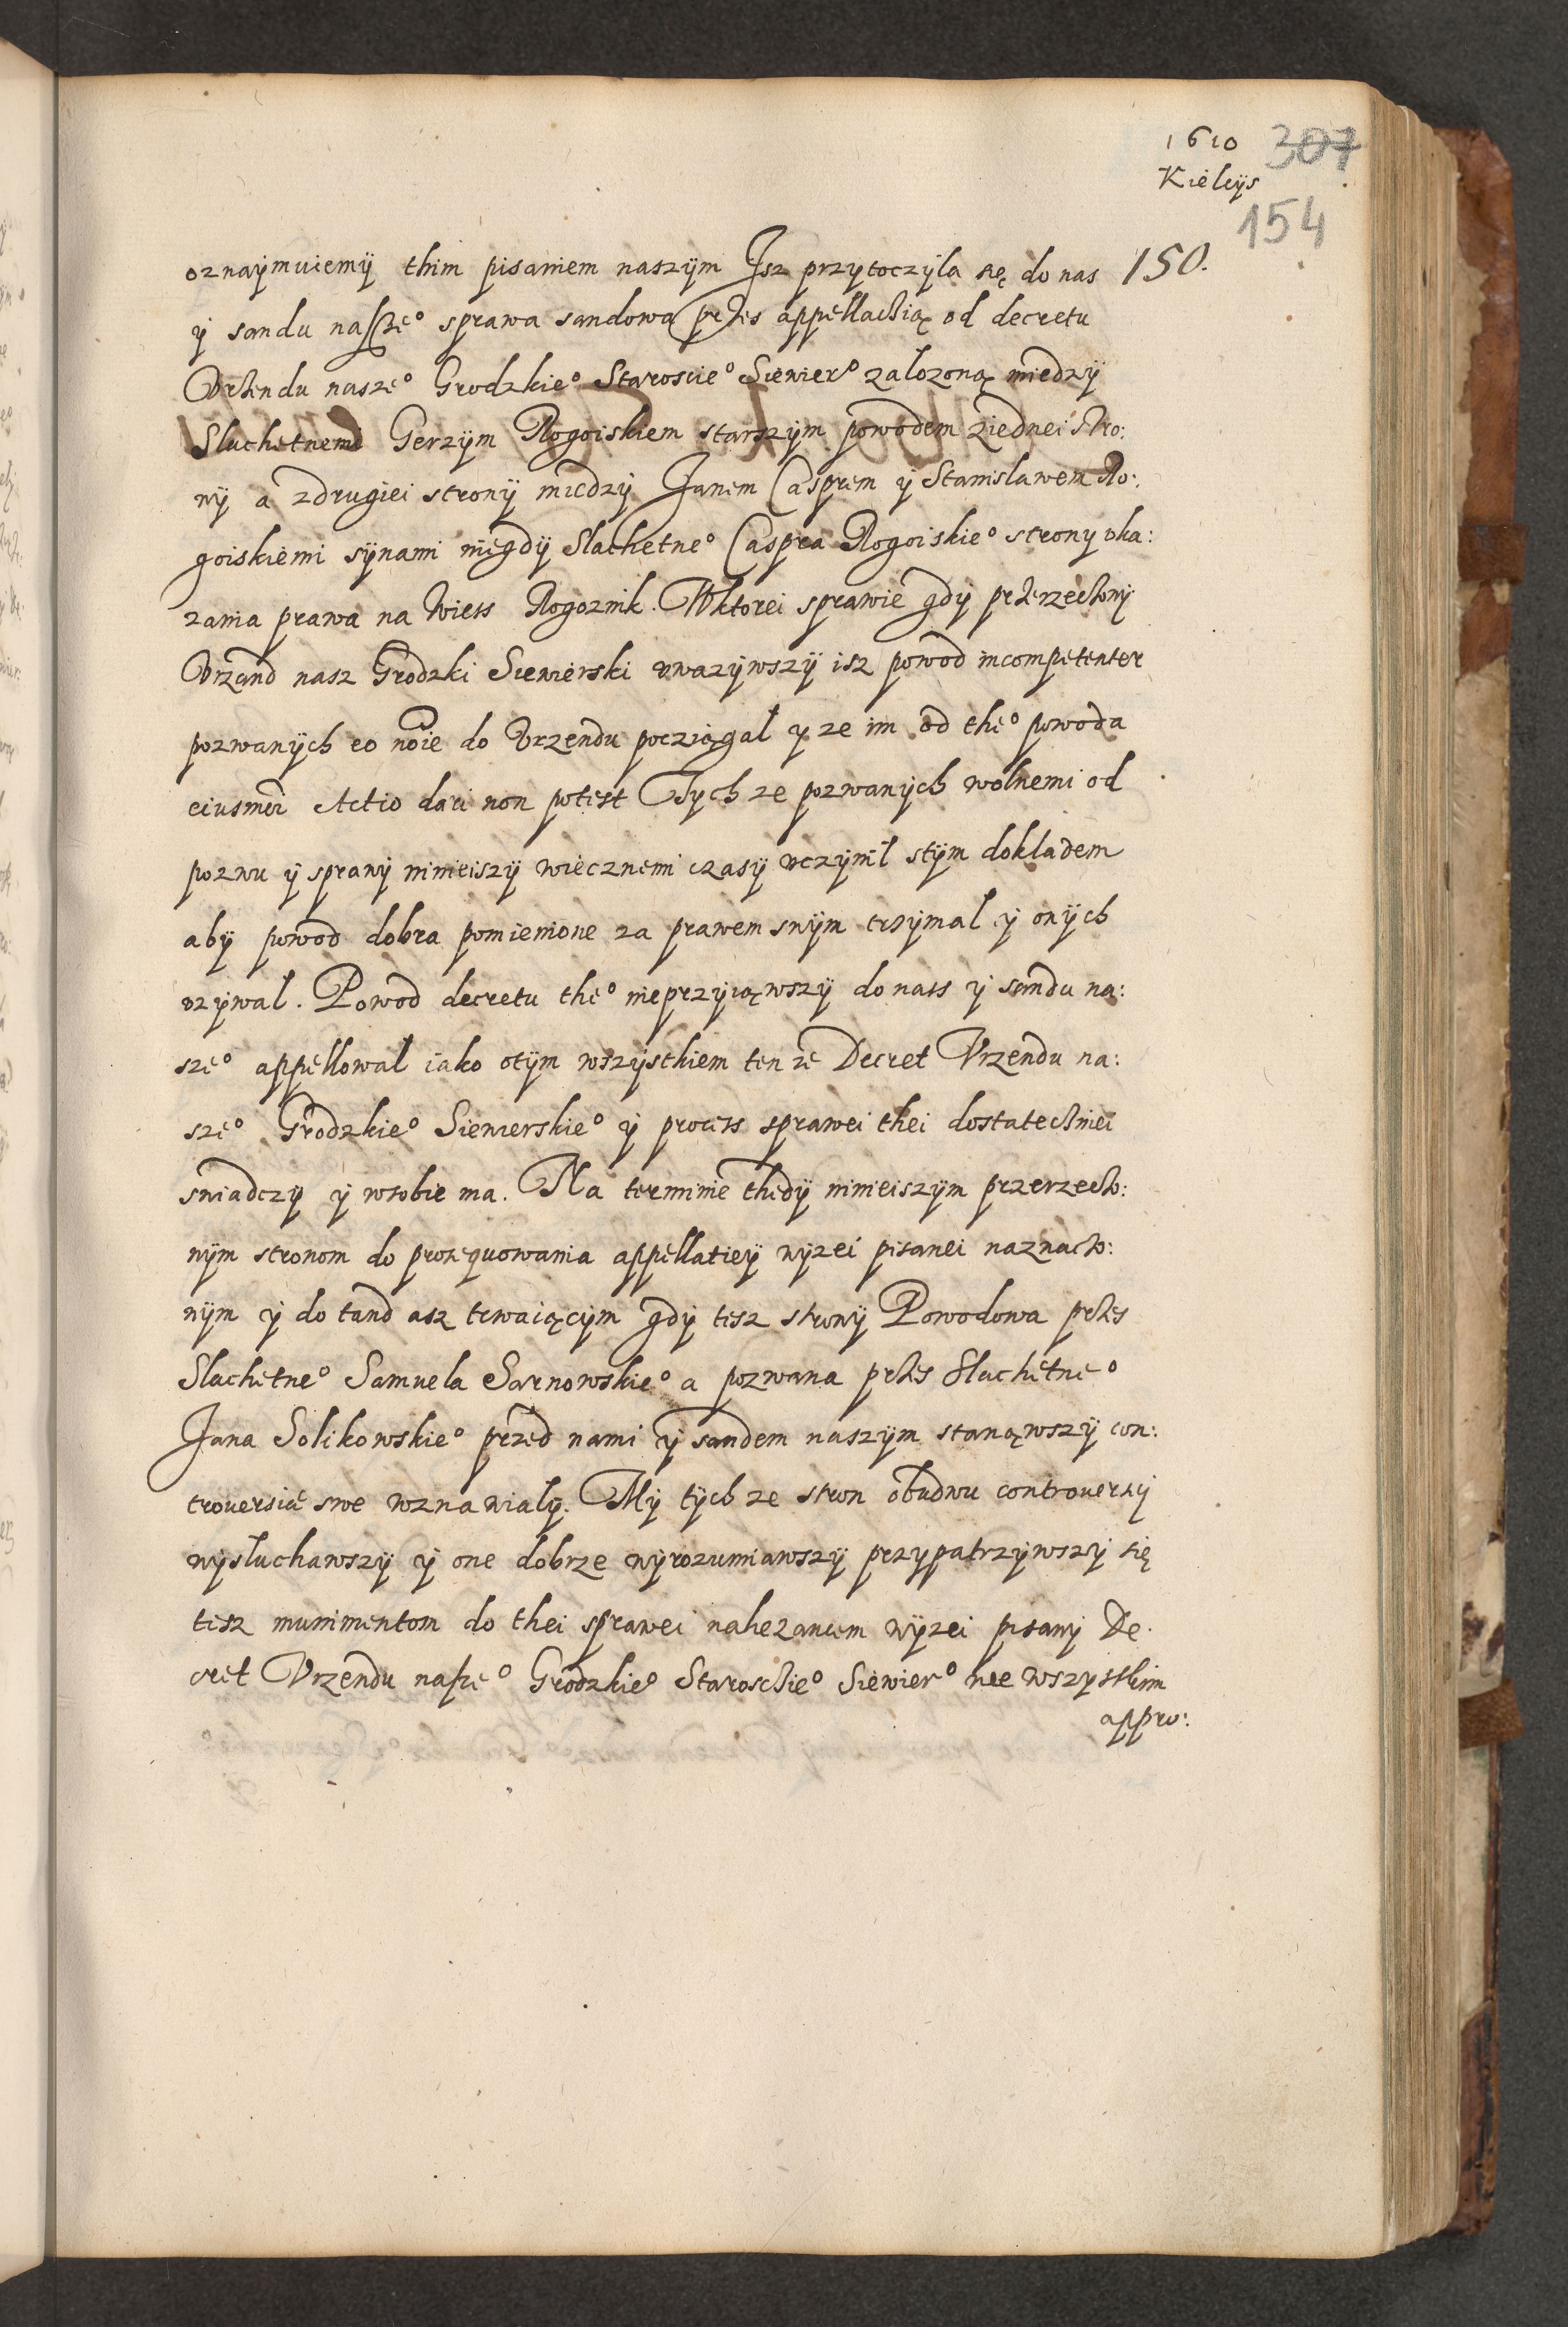 1610
307
Kielcijs
154
150.
oznaijmuiemij thim pisaniem naszijm Jsz przijtoczijla się do nas
ij sandu naszeº sprawa sandowa przes appellatią od decretu
Vrzendu naszeº Grodzkieº Starosticº Siewierº zalozoną miedzij
Slachetnemi Gerzijm Rogoiskiem starszijm powodem ziednei stro:
nij a zdrugiei stronij miedzij Janem Casprem ij Stanislawem Ro:
goiskiemi sijnami niegdij Slachetneº Caspra Rogoiskieº stronij oka:
zania prawa na Wiess Rogoznik. Wktorei sprawie gdij przerzeczonij
Vrzand nasz Grodzki Siewierski vwazijwszij isz powod incompetenter
pozwanijch eo noie do Vrzendu pocziągal ij ze im od theº powoda
eiusmoi Actio dari non potest Tijch ze pozwanijch wolnemi od
pozwu ij sprawij ninieiszij wiecznemi czasij vczijnil stijm dokladem
abij powod dobra pomienione za prawem swijm trzijmal ij onijch
vzijwal. Powod decretu theº nieprzijiąwszij do nass ij sandu na:
szeº appellowal iako otijm wszijstkiem ten ze Decret Vrzendu na:
szeº Grodzkieº Siewierskieº ij process sprawei thei dostateczniei
swiadczij ij wsobie ma. Na terminie thedij ninieiszijm przerzeczo:
nijm stronom do prosequowania appellatieij wijzei pisanei naznaczo:
nijm ij do tand asz trwaiącijm gdij tesz stronij Powodowa przes
Slachetneº Samuela Sarnowskieº a pozwana przes Slachetneº
Jana Solikowskieº przed nami ij sandem naszijm stanąwszij con:
trouersie swe wznawialij. Mij tijch ze stron obudwu controuersij
wijsluchawszij ij one dobrze wijrozumiawszij przijpatrzijwszij się
tesz munimentom do thei sprawei nalezancem wijzei pisanij De:
cret Vrzendu naszeº Grodzkieº Starosckieº Siewierº we wszijstkim
appro: